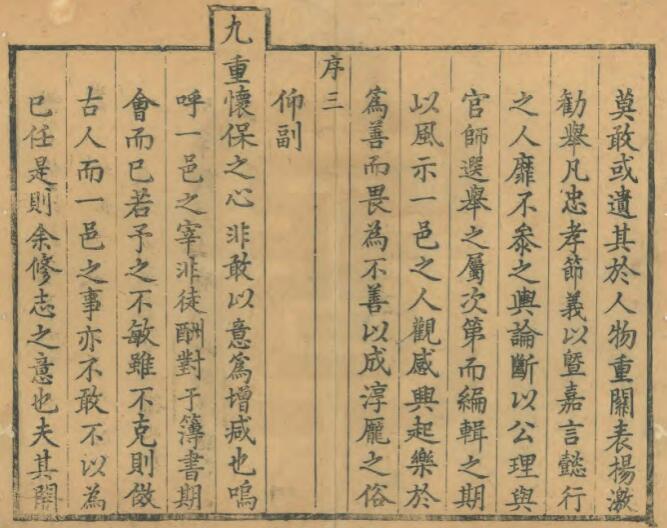 莫敢或遺其於人物重關表揚激
勸舉凡忠孝節義以曁嘉言懿行
之人靡不叅之輿論斷以公理與
官師選舉之屬次第而編輯之期
以風示一邑之人觀感興起樂於
爲善而畏為不善以成淳龎之俗
序三
仰副
九重懷保之心非敢以意爲增减也嗚
呼一邑之宰非徒酬對于簿書期
會而已若予之不敏雖不克則倣
古人而一邑之事亦不敢不以為
已任是則余修志之意也夫其關